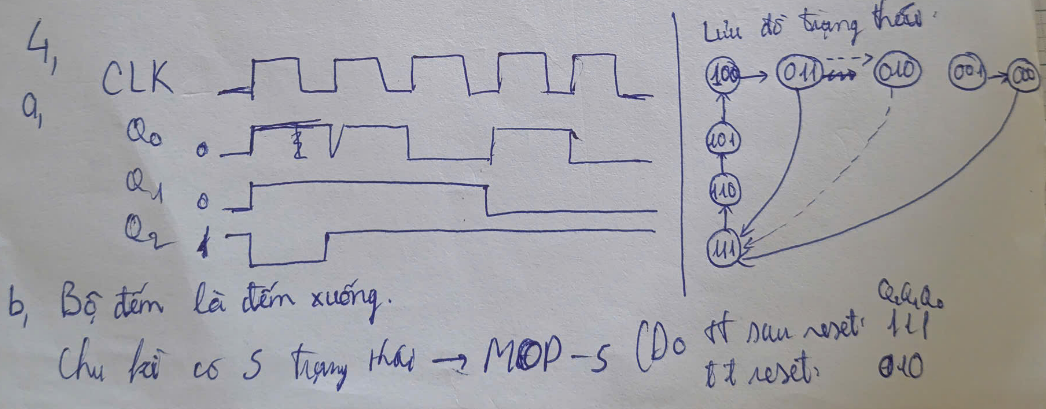 4,
a,
CLK
Q0 0
Q1 0
Q2 1
Lưu đồ trạng thái:
100 011 010 001 000
101
110
111
b, Bộ đếm là đếm xuống.
Chu kì có 5 trạng thái → MOD-5 (Do tt sau reset: 111
tt reset: 010
Q2Q1Q0